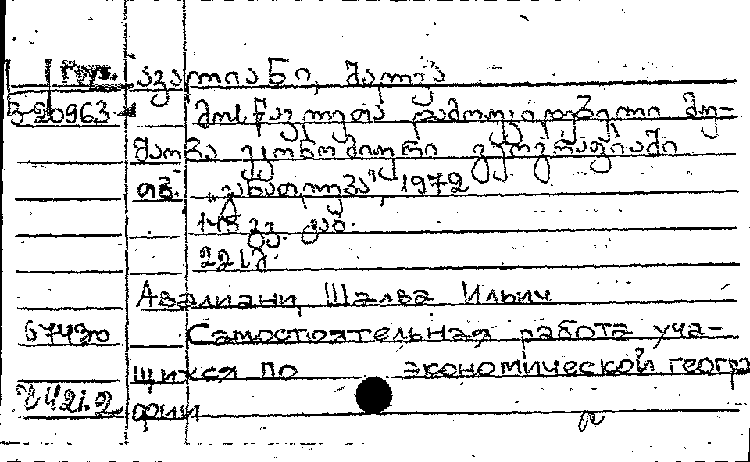 Груз.
ავალიანი, შალვა
3-20963
მოსწავლეთა დამოუკიდებელი მუ-
შაობა ეკონომიური გეოგრაფიაში
თბ. „განათლება“, 1972
148 გვ.
Авалиани, Шалва Ильич
67430
Самостоятельная работа уча-
щихся по экономической геогр
фии